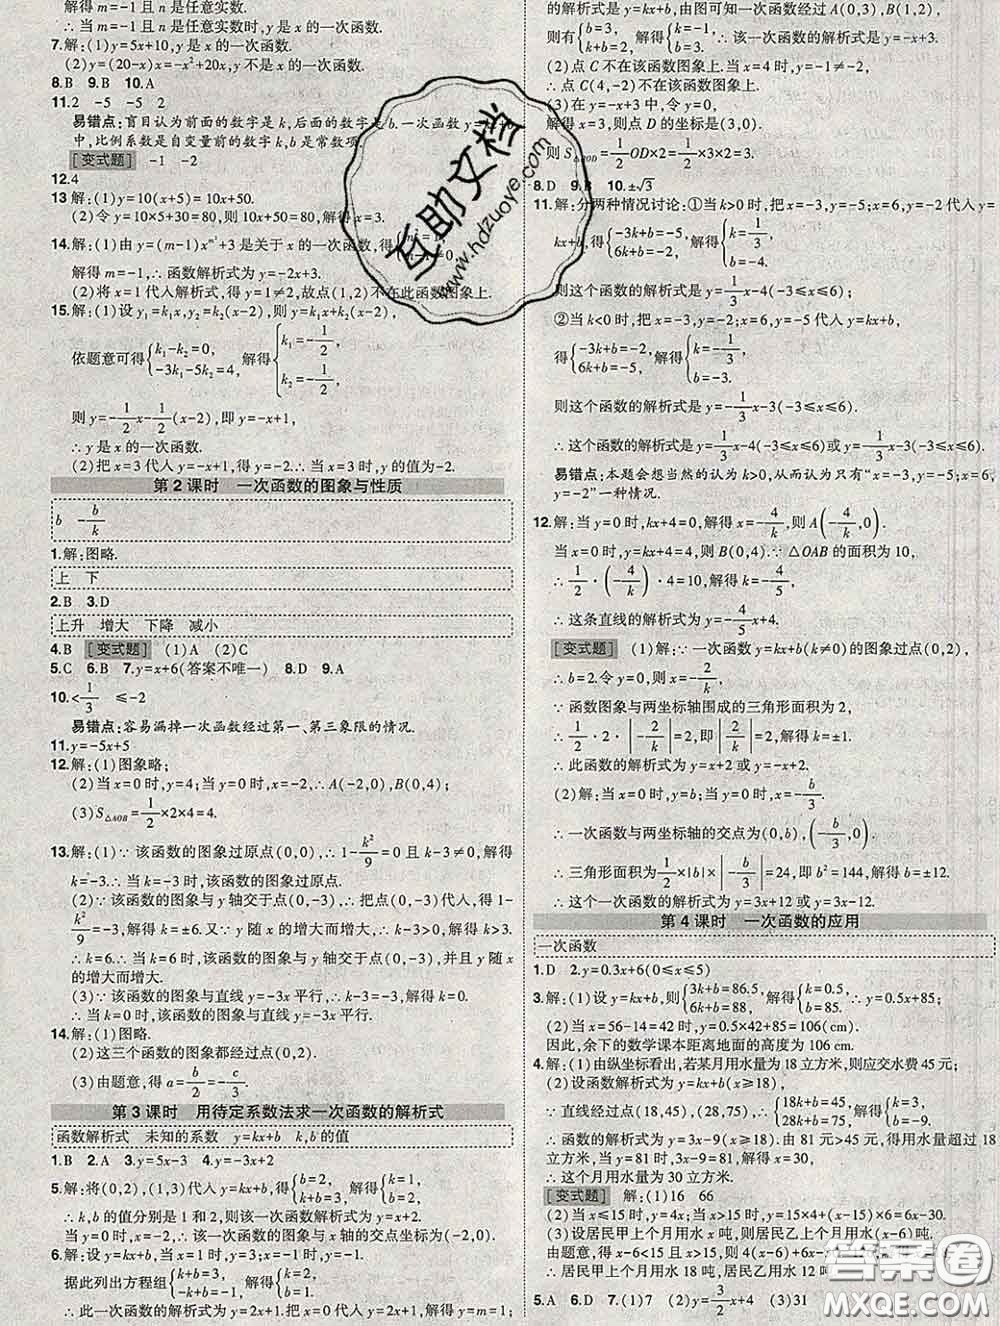 解得 m=-1 且 n 是任意实数.
∴当 m=-1 且 n 是任意实数.
7.解:(1)y=5x+10,y 是 x 的一次函数.
(2)y=(20-x)x=-x²+20x,y 不是 x 的一次函数.
8.B 9.B 10.A
11.2 -5 -5 2
易错点:盲目认为前面的数字是 k,后面的数字是 b.一次函数 y=
中,比例系数是自变量前的数字 k,b 是常数项.
[变式题] -1 -2
12.4
13.解:(1)y=10(x+5),即 y=10x+50.
(2)令 y=10×5+30=80,则 10x+50=80,解得 x=3.
14.解:(1)由 y=(m-1)x^{m²}+3 是关于 x 的一次函数,得
解得 m=-1,∴函数解析式为 y=-2x+3.
(2)将 x=1 代入解析式,得 y=1≠2,故点(1,2)不在此函数图象上.
15.解:(1)设 y₁=k₁x,y₂=k₂(x-2),则 y=k₁x+k₂(x-2),
依题意可得{k₁-k₂=0, -3k₁-5k₂=4, 解得{k₁=-1/2, k₂=-1/2,
则 y=-1/2x-1/2(x-2),即 y=-x+1,
∴y 是 x 的一次函数.
(2)把 x=3 代入 y=-x+1,得 y=-2.∴当 x=3 时,y 的值为-2.
第 2 课时 一次函数的图象与性质
b -b/k
1.解:图略.
上 下
2.B 3.D
上升 增大 下降 减小
4.B [变式题] (1)A (2)C
5.C 6.B 7.y=x+6(答案不唯一) 8.D 9.A
10.<1/3 ≤-2
易错点:容易漏掉一次函数经过第一、第三象限的情况.
11.y=-5x+5
12.解:(1)图象略;
(2)当 x=0 时,y=4;当 y=0 时,x=-2,∴A(-2,0),B(0,4);
(3)S△AOB=1/2×2×4=4.
13.解:(1)∵该函数的图象过原点(0,0),∴1-k²/9=0 且 k-3≠0,解得
k=-3.∴当 k=-3 时,该函数的图象过原点.
(2)∵该函数的图象与 y 轴交于点(0,-3),∴点(0,-3)在图象上,得 1-
k²/9=-3,解得 k=±6.又∵y 随 x 的增大而增大,∴k-3>0,解得 k>3.
∴k=6.∴当 k=6 时,该函数的图象与 y 轴交于点(0,-3),并且 y 随 x
的增大而增大.
(3)∵该函数的图象与直线 y=-3x 平行,∴k-3=-3,解得 k=0.
∴当 k=0 时,该函数的图象与直线 y=-3x 平行.
14.解:(1)图略.
(2)这三个函数的图象都经过点(0,2).
(3)由题意,得 a=b/2=-c/3.
第 3 课时 用待定系数法求一次函数的解析式
函数解析式 未知的系数 y=kx+b k,b 的值
1.B 2.A 3.y=5x-3 4.y=-3x+2
5.解:将(0,2),(1,3)代入 y=kx+b,得{b=2, k+b=3, 解得{b=2, k=1,
∴k,b 的值分别是 1 和 2,则该一次函数的解析式为 y=x+2.
当 y=0 时,x=-2,则该一次函数的图象与 x 轴的交点坐标为(-2,0).
6.解:设 y=kx+b,当 x=3 时,y=6;当 x=-1 时,y=-1,
据此列出方程组{3k+b=6, -k+b=-1,
∴此一次函数的解析式为
的解析式为 y=kx+b,由图可知一次函数经过 A(0,3),B(1,2),
则有{b=3, k+b=2, 解得{k=-1, b=3. ∴该一次函数的解析式为 y=-x+3.
(2)点 C 不在该函数图象上.当 x=4 时,y=-1≠-2,
∴点 C(4,-2)不在该函数图象上.
(3)在 y=-x+3 中,令 y=0,
解得 x=3,则点 D 的坐标是(3,0).
则 S△BOD=1/2OD×2=1/2×3×2=3.
8.D 9.B 10.±√3
11.解:分两种情况讨论:①当 k>0 时,把 x=-3,y=-5;x=6,y=-2 代入 y=
kx+b,得{-3k+b=-5, 6k+b=-2, 解得{k=1/3, b=-4.
则这个函数的解析式是 y=1/3x-4(-3≤x≤6);
②当 k<0 时,把 x=-3,y=-2;x=6,y=-5 代入 y=kx+b,
得{-3k+b=-2, 6k+b=-5, 解得{k=-1/3, b=-3.
则这个函数的解析式是 y=-1/3x-3(-3≤x≤6).
∴这个函数的解析式是 y=1/3x-4(-3≤x≤6)或 y=-1/3x-3(-3≤x≤6).
易错点:本题会想当然的认为 k>0,从而认为只有“x=-3,y=-5,x=6,
y=-2”一种情况.
12.解:当 y=0 时,kx+4=0,解得 x=-4/k,则 A(-4/k,0).
当 x=0 时,y=kx+4=4,则 B(0,4).∵△OAB 的面积为 10,
∴1/2·(-4/k)·4=10,解得 k=-4/5,
∴这条直线的解析式为 y=-4/5x+4.
[变式题] (1)解:∵一次函数 y=kx+b(k≠0)的图象过点(0,2),
∴b=2.令 y=0,则 x=-2/k,
∵函数图象与两坐标轴围成的三角形面积为 2,
∴1/2·2·|-2/k|=2,即|2/k|=2,解得 k=±1.
∴此函数的解析式为 y=x+2 或 y=-x+2.
(2)解:当 x=0 时,y=b,当 y=0 时,x=-b/3.
∴一次函数与两坐标轴的交点为(0,b),(-b/3,0).
∴三角形面积为1/2×|b|×|-b/3|=24,即 b²=144,解得 b=±12.
∴这个一次函数的解析式为 y=3x+12 或 y=3x-12.
第 4 课时 一次函数的应用
一次函数
1.D 2.y=0.3x+6(0≤x≤5)
3.解:(1)设 y=kx+b,则{3k+b=86.5, 6k+b=88, 解得{k=0.5, b=85. ∴y=0.5x+85;
(2)当 x=56-14=42 时,y=0.5×42+85=106(cm).
因此,余下的数学课本距离地面的高度为 106 cm.
4.解:(1)由纵坐标看出,若某月用水量为 18 立方米,则应交水费 45 元;
(2)设函数解析式为 y=kx+b(x≥18),
∵直线经过点(18,45),(28,75),∴{18k+b=45, 28k+b=75, 解得{k=3, b=-9.
∴函数的解析式为 y=3x-9(x≥18).由 81 元>45 元,得用水量超过 18
立方米,当 y=81 时,3x-9=81,解得 x=30,
∴这个月用水量为 30 立方米.
[变式题] 解:(1)16 66
(2)当 x≤15 时,y=4x;当 x>15 时,y=15×4+(x-15)×6=6x-30.
(3)设居民甲上个月用水 x 吨,则居民乙上个月用水(x-6)吨.
由题意,得 x-6<15 且 x>15,则
∴居民甲上个月用水 18 吨,居民乙用水 12
5.A 6.D 7.(1)7 (2)y=3/2x+4 (3)31
互助文档
www.hdzuoye.com
答案圈
MXQE.COM